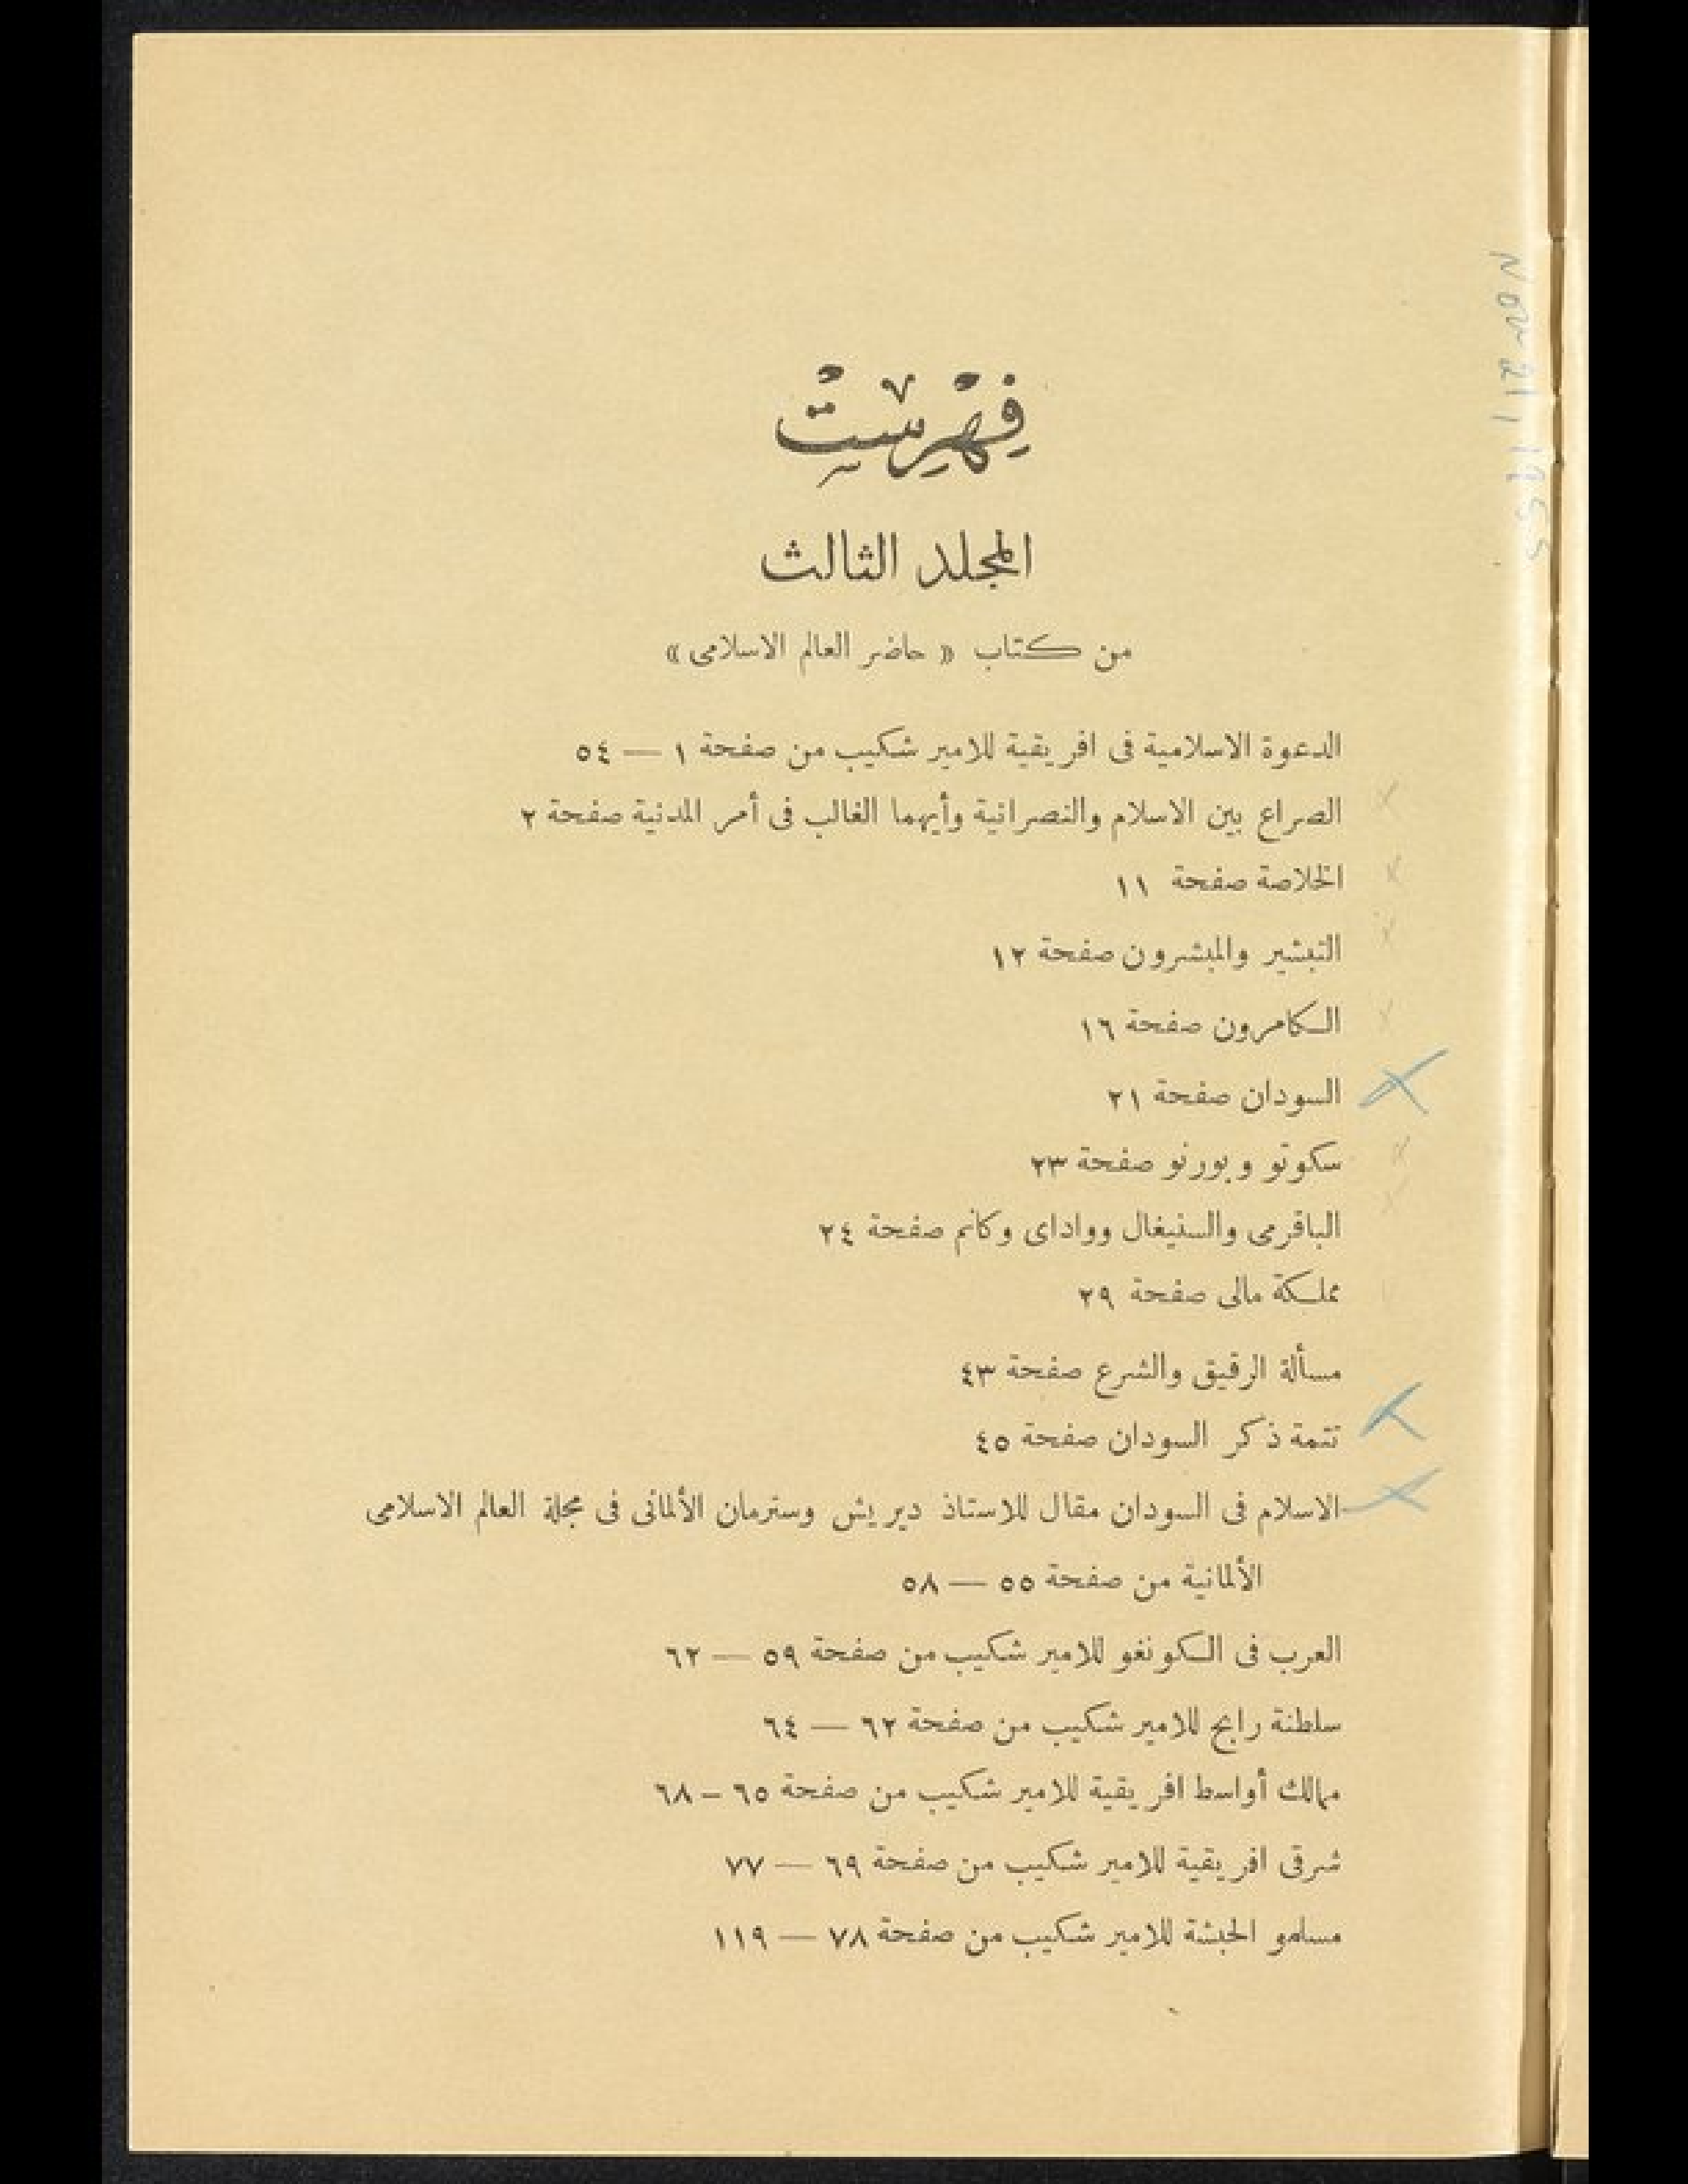 فِهْرِسْتْ
المجلد الثالث
من كتاب « حاضر العالم الاسلامى »
الدعوة الاسلامية فى افريقية للامير شكيب من صفحة ١ — ٥٤
الصراع بين الاسلام والنصرانية وأيهما الغالب فى أمر المدنية صفحة ٢
الخلاصة صفحة ١١
التبشير والمبشرون صفحة ١٢
الكامرون صفحة ١٦
السودان صفحة ٢١
سكوتو وبورنو صفحة ٢٣
الباقرمى والسنيغال وواداى وكانم صفحة ٢٤
مملكة مالى صفحة ٢٩
مسألة الرقيق والشرع صفحة ٤٣
تتمة ذكر السودان صفحة ٤٥
الاسلام فى السودان مقال للاستاذ ديريش وسترمان الألمانى فى مجلة العالم الاسلامى
الألمانية من صفحة ٥٥ — ٥٨
العرب فى الكونغو للامير شكيب من صفحة ٥٩ — ٦٢
سلطنة رابح للامير شكيب من صفحة ٦٢ — ٦٤
ممالك أواسط افريقية للامير شكيب من صفحة ٦٥ – ٦٨
شرقى افريقية للامير شكيب من صفحة ٦٩ — ٧٧
مسلمو الحبشة للامير شكيب من صفحة ٧٨ — ١١٩
Nov 21, 1955